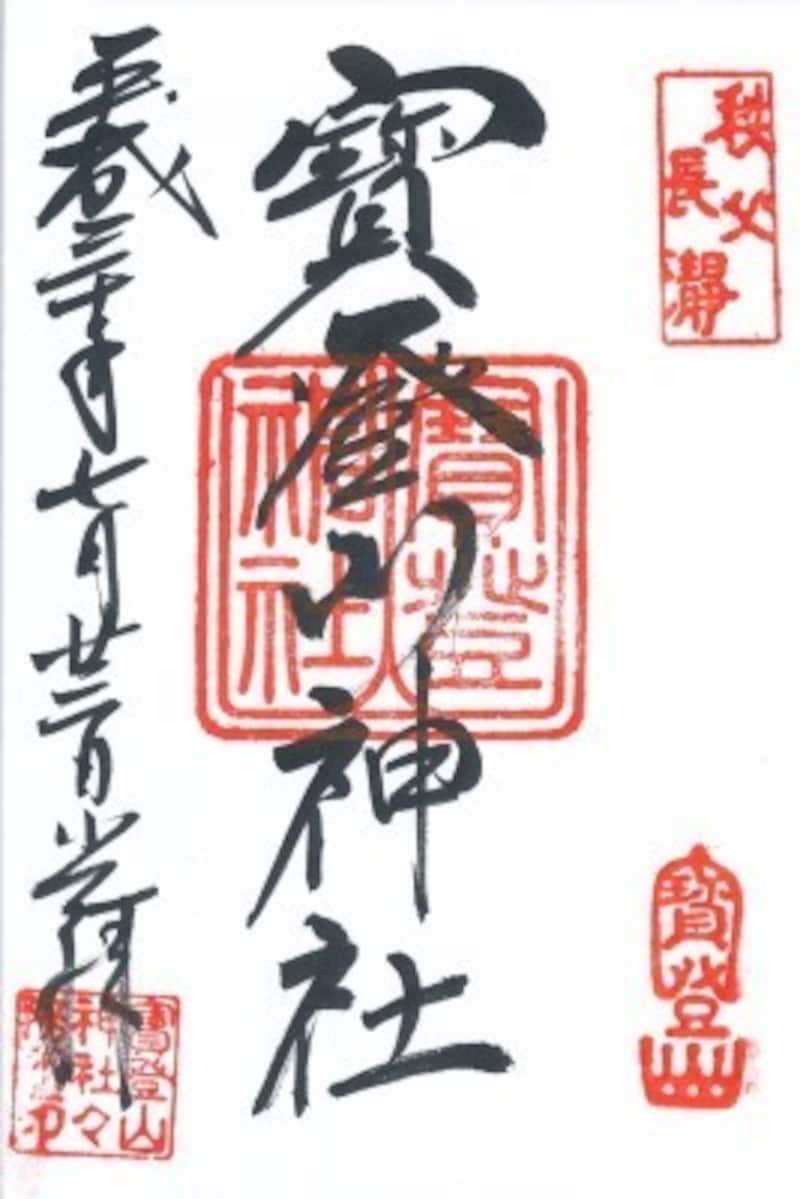 秩父
長瀞
寶登山
寶登山神社
寶登山
神社
平成三十年七月廿二日参拝
寶登山
神社々
務所印